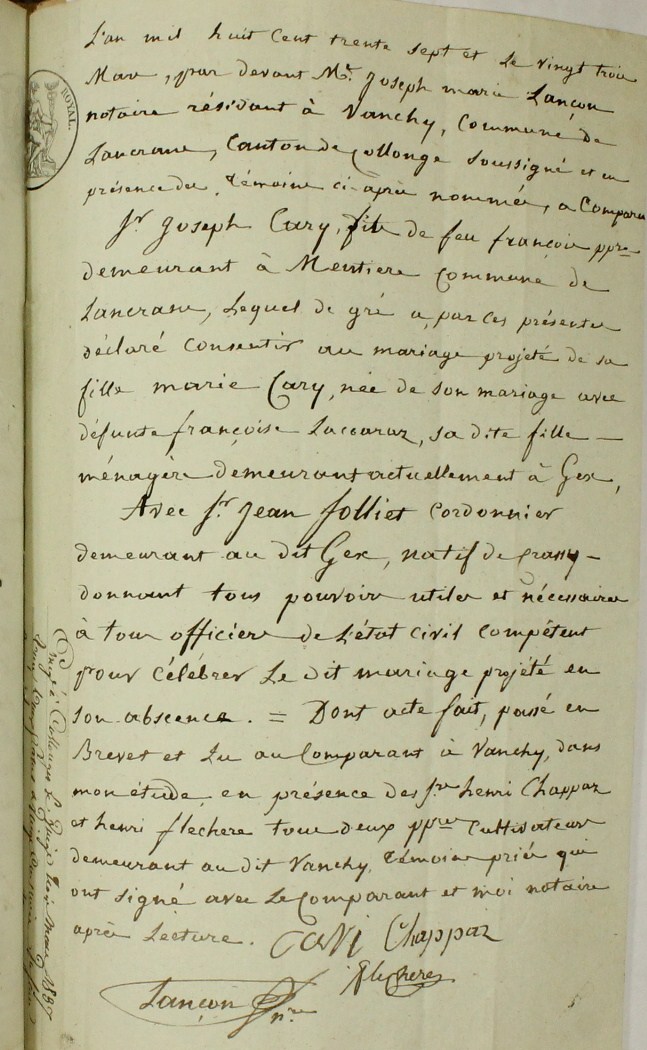 L'an mil huit cent trente sept et le vingt trois
Mars, par devant Me. Joseph marie Lançon
notaire résidant à Vanchy, Commune de
Lancrans, Canton de Collonge soussigné et en
présence des témoins ci-après nommés, a comparu
Sr. Joseph Cary, fils de feu françois ppre
demeurant à Mentiere commune de
Lancrans, Lequel de gré a, par ces présentes
déclaré consentir au mariage projeté de sa
fille marie Cary, née de son mariage avec
défunte françoise Laccaraz, sa dite fille
ménagère demeurant actuellement à Gex,
Avec Sr. Jean Jolliet cordonnier
demeurant au dit Gex, natif de Crassy
donnant tous pouvoirs utiles et nécessaires
à tous officiers de L'état civil compétent
pour célébrer Le dit mariage projeté en
son abscence. = Dont acte fait, passé en
Brevet et Lu au comparant à Vanchy, dans
mon étude, en présence des Srs henri Chappaz
et henri flechere tous deux ppres cultivateurs
demeurant au dit Vanchy, témoins priés qui
ont signé avec Le comparant et moi notaire
après Lecture. Cari Chappaz
flechere
Lançon nre
ROYAL.
à Collonges Le
mars 1837